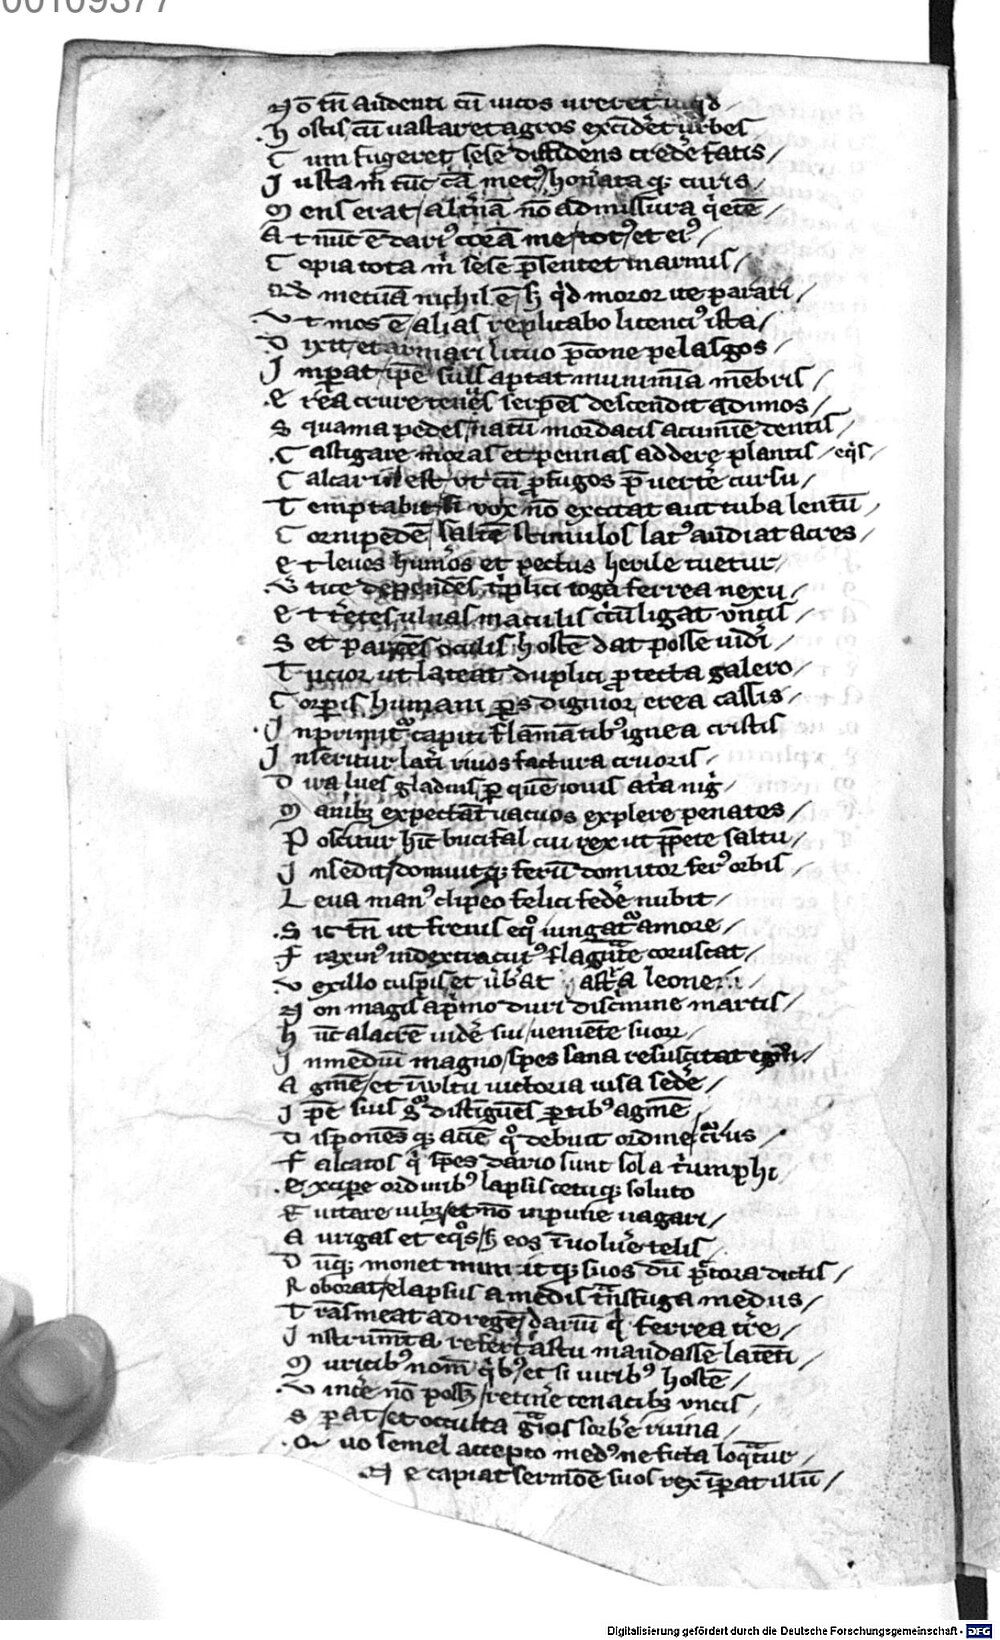 00109377
No tn̄ audenti cū uicos ureret
hostis cū uastaret agros excid'et urbes
Cum fugeret sese diffidens cred'e fatis /
Justa m̄ tūc cā met9 honerata q3 curis /
Mens erat / alt'nā nō admissura q'etē /
At nūc ē dari9 corā me / tot9 et ei9 /
Copia tota m̄ sese p̄sentet in armis /
Qd metuā nichil ē / s3 q'd moror ite parati /
Vt mos ē / alias replicabo licenci9 ista /
Dixit / et armari lituo p̄cone pelasgos /
Jmpat ip̄e suis aptat munimina mēbris /
Erea crure tenes serpēs descendit ad imos /
Squama pedes / natū mordacis acumīe dentis /
Castigare moras et pennas addere plantis / eq's /
Calcar est / vt cū pfugos p̄uerte cursu /
Temptabit / si vox nō excitat aut tuba lentū /
Cornipedē / saltē stimulos lat9 audiat acres /
Et leues hum'os et pectus herile tuetur /
Vtice dependēs t'plici toga ferrea nexu /
Et t'etes ulnas maculis c'cūligat vncis /
Set parcēs oculis hostē dat posse uid'i /
Tucior ut lateat duplici ptecta galero /
Corpis humani ps dignior erea cassis /
Jnprimit'r capiti flāmātib9 ignea cristis
Jnseritur lat'i riuos factura cruoris /
Dira lues gladius / p quē iouis at'a nig'
Manib3 expectāt uacuos explere penates /
Poscitur hīc bucifal cui rex ut ppete saltu /
Jnsedit / domuitq3 ferū domitor fer9 orbis /
Leua man9 clipeo felici fed'e nubit /
Sic tn̄ ut frenis eq' iungat'r amore /
Fraxin9 in dextra cui9 flagrāte coruscat /
Vexillo cuspis et ūb'at astra leonem
Non magis ap'mo diui disc'mine martis /
hūc alacrē uid'e sui / uenietē suor /
Jn mediū magno / spes sana resuscitat
Agmē / et ī wltu uictoria uisa sed'e /
Jpē suis g'a distīguēs ptib9 agmē /
Disponēs q3 aciē q' debuit ordine / c'rus /
Falcatos q' spes dario sunt sola t'umphi
Excipe ordinib9 lapsis cetuq3 soluto
Euitare iub3 / et nō inpune uagari /
Aurigas et eq's / s3 eos īuolu'e telis
Dūq3 monet munitq3 suos dū p̄tora dictis /
Roborat / elapsus a medis tn̄sfuga medus /
Trāsmeat ad regē / dariū q' ferrea t're /
Jnstrum̄ta refert astu mādasse latēti /
Muricib9 nom̄ q'b9 / et si uirib9 hostē /
Vince nō poss3 / retine tenacib3 vncis /
Spat / et occulta g'ios sorb'e ruina /
Quo semel accepto med9 ne ficta loq'atur /
Ne capiat sermōe suos rex īpat illū /
Digitalisierung gefördert durch die Deutsche Forschungsgemeinschaft - DFG